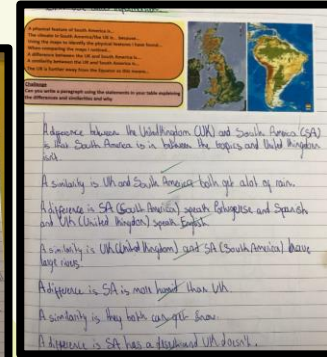 A physical feature of South America is...
The climate in South America/the UK is... because...
Using the maps to identify the physical features I have found...
When comparing the maps I noticed...
A difference between the UK and South America is...
A similarity between the UK and South America is...
The UK is further away from the Equator so this means...
Challenge
Can you write a paragraph using the statements in your table explaining
the differences and similarities and why.
A difference between the United Kingdom (UK) and South America (SA)
is that South America is in between the tropics and United Kingdom
isn't.
A similarity is UK and South America both get alot of rain.
A difference is SA (South America) speak Portuguese and Spanish
and UK (United Kingdom) speak English.
A similarity is UK (United Kingdom) and SA (South America) have
large rivers.
A difference is SA is more humid than UK.
A similarity is they both can get snow.
A difference is SA has a desert and UK doesn't.